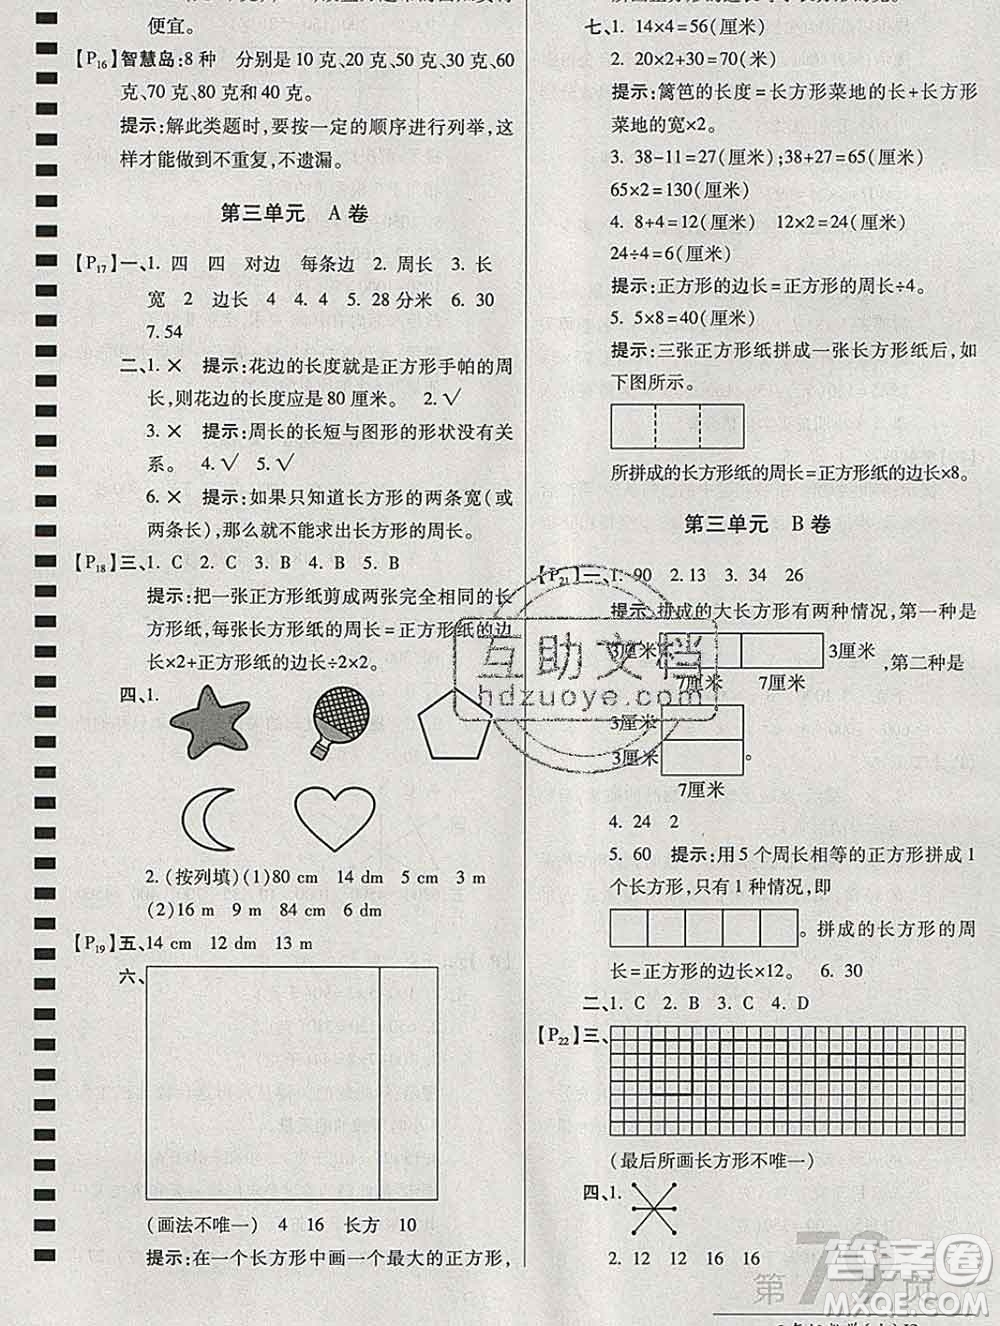 便宜。
【P16】智慧岛:8种 分别是10克、20克、30克、50克、60
克、70克、80克和40克。
提示:解此类题时,要按一定的顺序进行列举,这
样才能做到不重复,不遗漏。
第三单元 A卷
【P17】一、1. 四 四 对边 每条边 2. 周长 3. 长
宽 2 边长 4 4. 4 5. 28分米 6. 30
7. 54
二、1. × 提示:花边的长度就是正方形手帕的周
长,则花边的长度应是80厘米。 2. √
3. × 提示:周长的长短与图形的形状没有关
系。 4. √ 5. √
6. × 提示:如果只知道长方形的两条宽(或
两条长),那么就不能求出长方形的周长。
【P18】三、1. C 2. C 3. B 4. B 5. B
提示:把一张正方形纸剪成两张完全相同的长
方形纸,每张长方形纸的周长=正方形纸的边
长×2+正方形纸的边长÷2×2。
四、1.
2. (按列填)(1)80 cm 14 dm 5 cm 3 m
(2)16 m 9 m 84 cm 6 dm
【P19】五、14 cm 12 dm 13 m
六、
(画法不唯一) 4 16 长方 10
提示:在一个长方形中画一个最大的正方形,
七、1. 14×4=56(厘米)
2. 20×2+30=70(米)
提示:篱笆的长度=长方形菜地的长+长方形
菜地的宽×2。
3. 38-11=27(厘米);38+27=65(厘米)
65×2=130(厘米)
4. 8+4=12(厘米) 12×2=24(厘米)
24÷4=6(厘米)
提示:正方形的边长=正方形的周长÷4。
5. 5×8=40(厘米)
提示:三张正方形纸拼成一张长方形纸后,如
下图所示。
所拼成的长方形纸的周长=正方形纸的边长×8。
第三单元 B卷
【P21】一、1. 90 2. 13 3. 34 26
提示:拼成的大长方形有两种情况,第一种是
3厘米 3厘米,第二种是
7厘米 7厘米
3厘米
3厘米 。
7厘米
4. 24 2
5. 60 提示:用5个周长相等的正方形拼成1
个长方形,只有1种情况,即
。拼成的长方形的周
长=正方形的边长×12。 6. 30
二、1. C 2. B 3. C 4. D
【P22】三、
(最后所画长方形不唯一)
四、1.
2. 12 12 16 16
第72页
互助文档
hdzuoye.com
答案圈
MXQE.COM